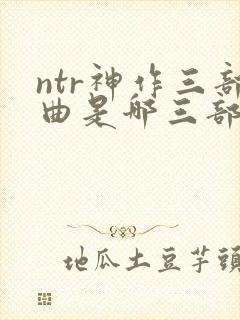 ntr神作三部
曲是哪三部
地瓜土豆芋頭